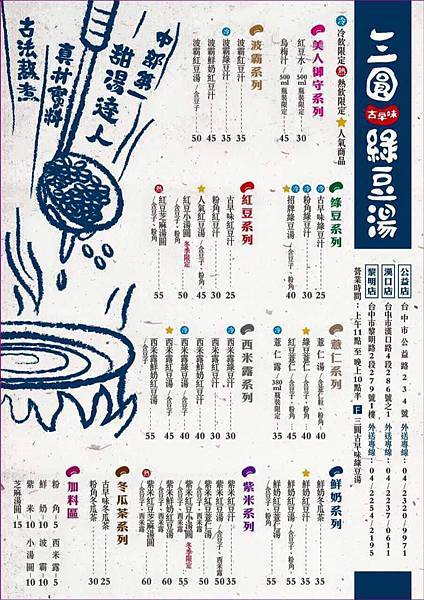 三圓
古早味
綠豆湯
公益店 台中市公益路234號 外送專線:04/2320/9971
漢口店 台中市漢口路4段286號之1 外送專線:04/2237/0611
黎明店 台中市黎明路2段279號1樓 外送專線:04/2254/2195
營業時間:上午11點至晚上10點半 F 三圓古早味綠豆湯
冷 冷飲限定 熱 熱飲限定 人氣商品
美人御守系列
紅豆水/500ml瓶裝限定 30
烏梅汁/500ml瓶裝限定 45
波霸系列
波霸紅豆汁 35
冷 波霸綠豆汁 35
波霸鮮奶紅豆汁 45
波霸紅豆湯/含豆子 50
中部第一
甜湯達人
真材實料
古法熬煮
綠豆系列
冷 古早味綠豆汁 25
冷 粉角綠豆汁 30
冷 招牌綠豆湯/含豆子、粉角 40
紅豆系列
古早味紅豆汁 25
粉角紅豆汁 30
人氣紅豆湯/含豆子、粉角 45
紅豆小湯圓/含豆子、粉角 冬季限定 50
熱 紅豆芝麻湯圓/含豆子、粉角 55
薏仁系列
薏仁湯/含薏仁粒、粉角 40
綠豆薏仁/含豆子、粉角 40
紅豆薏仁/含豆子、粉角 45
冷 薏仁露/380ml瓶裝限定 35
西米露系列
西米露紅豆汁 30
冷 西米露綠豆汁 30
西米露鮮奶紅豆汁 40
西米露綠豆湯/含豆子 40
西米露紅豆湯/含豆子 45
西米露鮮奶紅豆湯/含豆子 55
鮮奶系列
鮮奶冬瓜茶 35
鮮奶紅豆汁 35
鮮奶紅豆湯/含豆子、粉角 55
紫米系列
紫米紅豆汁 35
紫米紅豆湯/含豆子、西米露 50
冬季限定 55
紫米鮮奶紅豆湯/含豆子、西米露 60
熱 紫米紅豆芝麻湯圓/含豆子、西米露 60
冬瓜茶系列
古早味冬瓜茶 25
粉角冬瓜茶 30
加料區
粉角5 西米露5
鮮奶10 波霸10
紫米10 小湯圓10
芝麻湯圓15